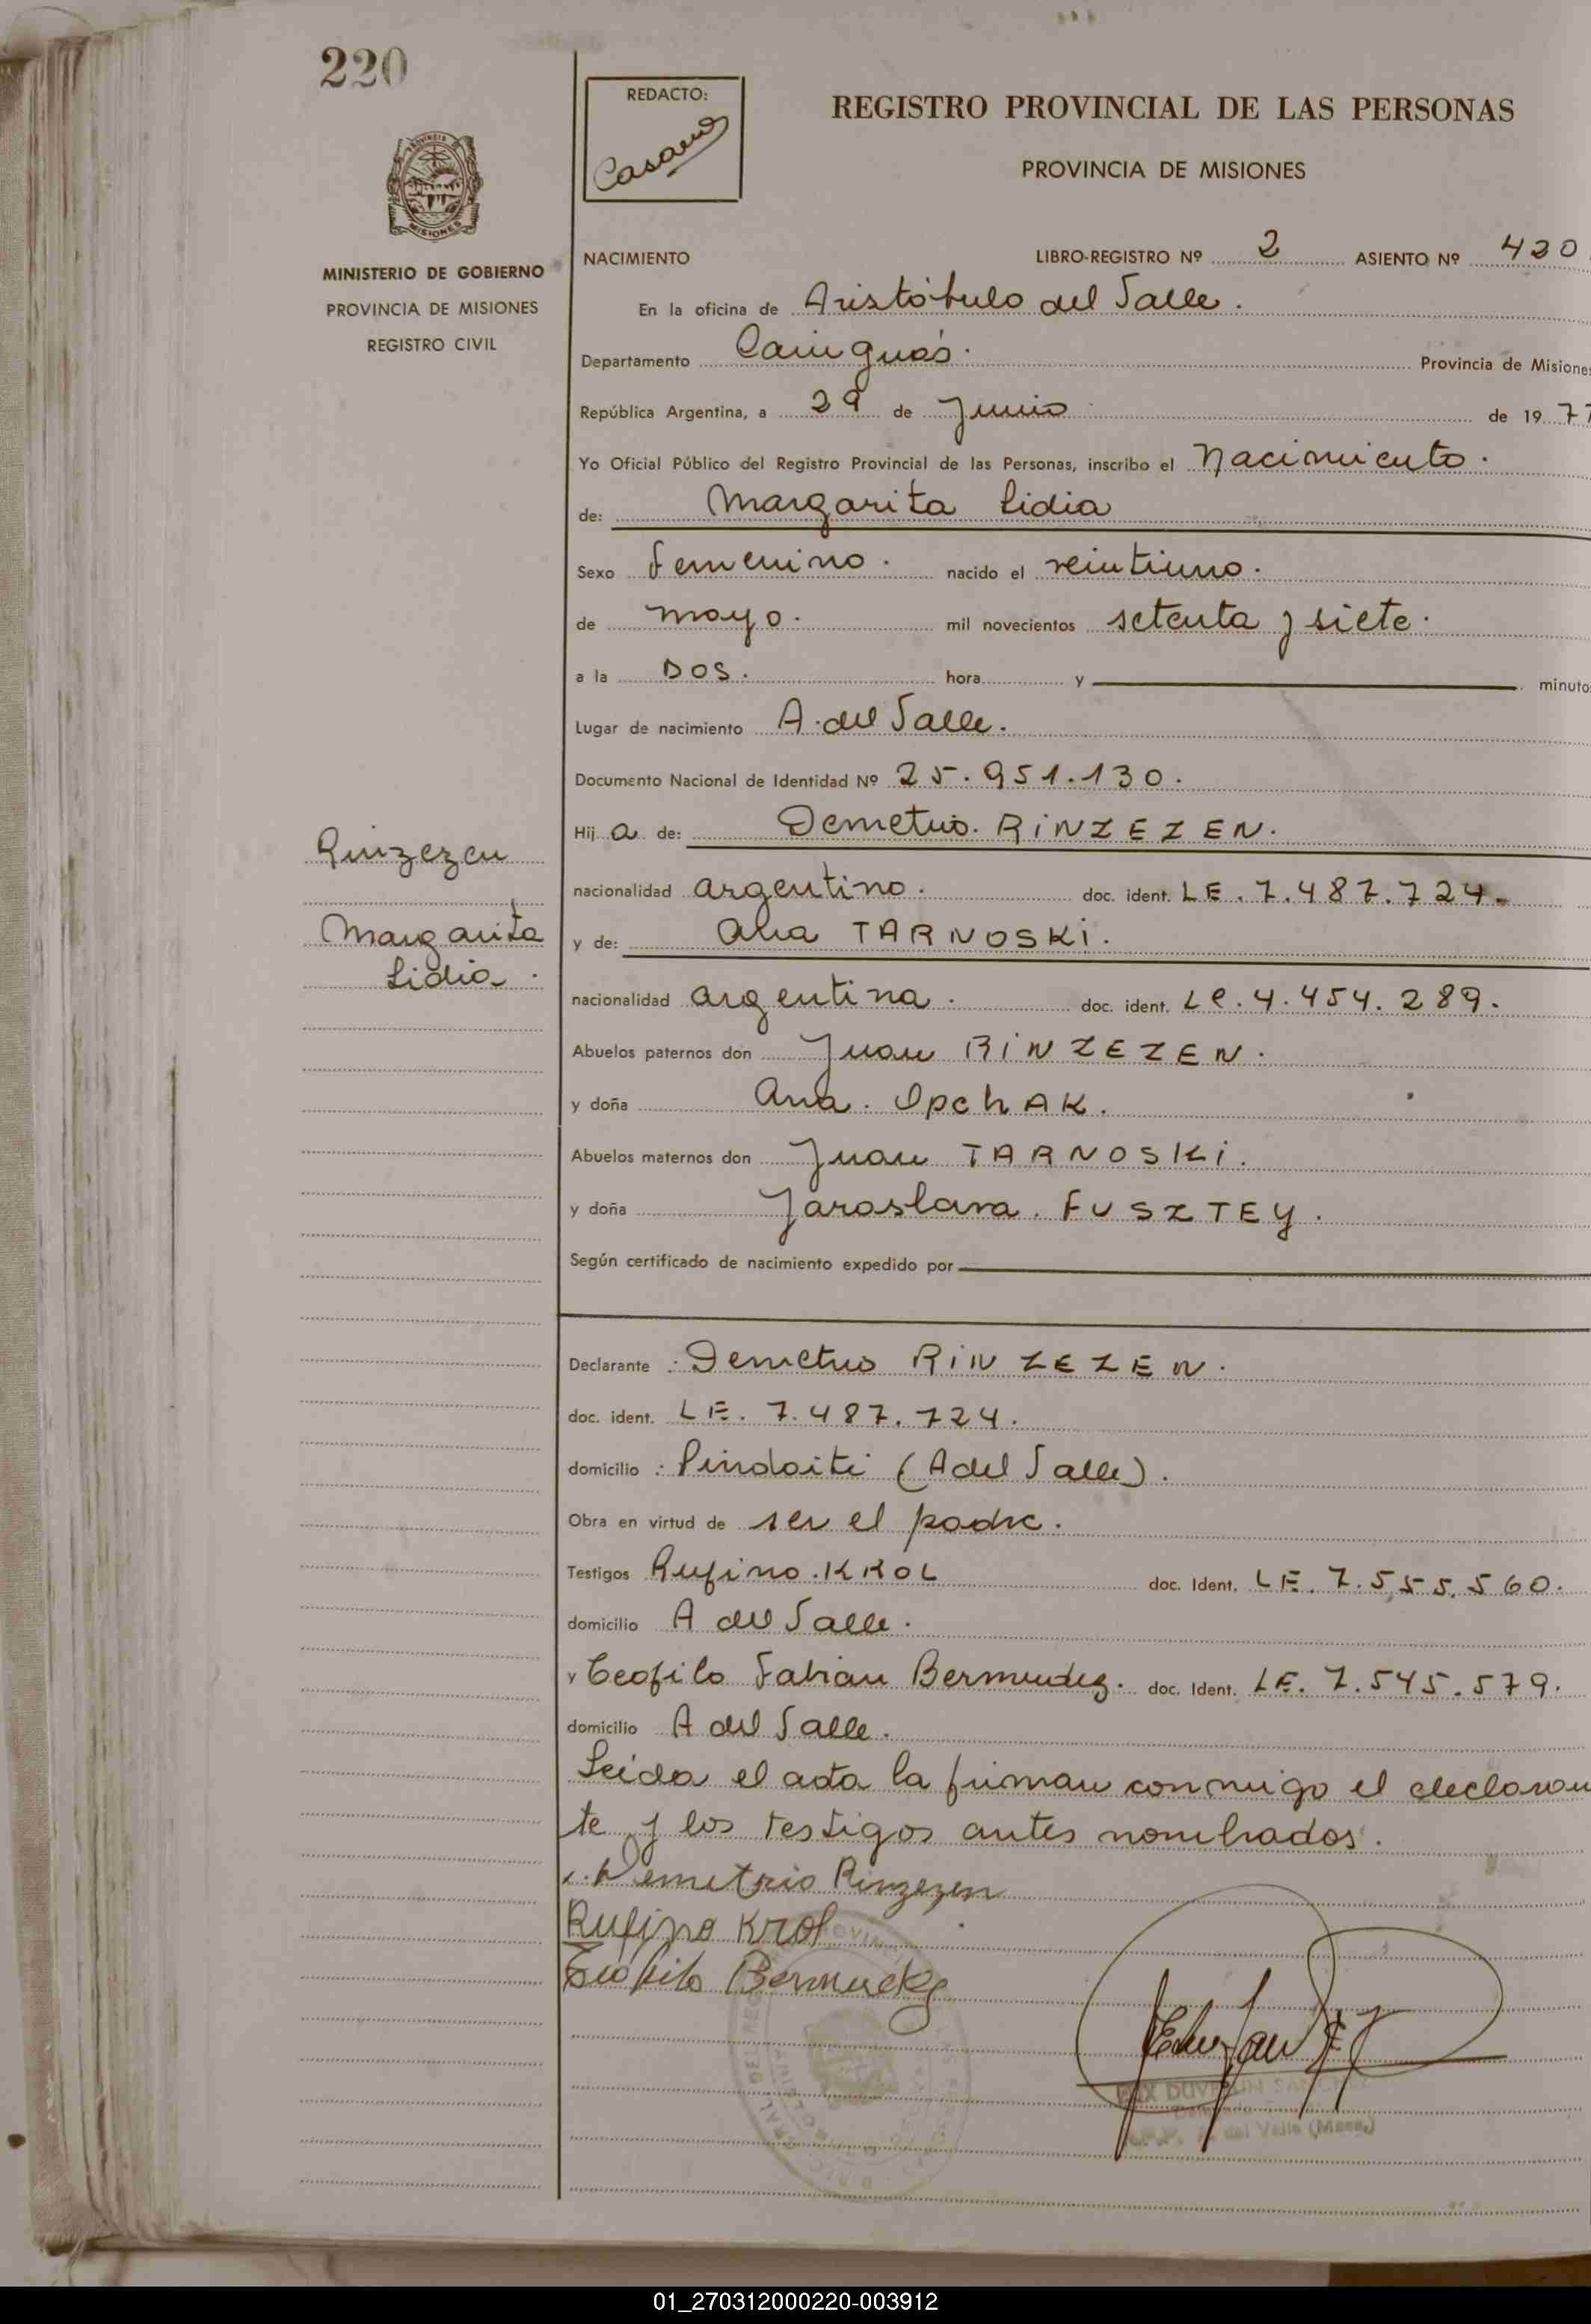 220
REDACTO:
Casano
REGISTRO PROVINCIAL DE LAS PERSONAS
PROVINCIA DE MISIONES
MISIONES
MINISTERIO DE GOBIERNO
PROVINCIA DE MISIONES
REGISTRO CIVIL
NACIMIENTO LIBRO-REGISTRO Nº 2 ASIENTO Nº 420
En la oficina de Aristóbulo del Valle.
Departamento Cainguás. Provincia de Misiones
República Argentina, a 29 de Junio de 1977
Yo Oficial Público del Registro Provincial de las Personas, inscribo el Nacimiento.
de: Margarita Lidia
Sexo femenino. nacido el veintiuno.
de mayo. mil novecientos setenta y siete.
a la DOS. hora y minuto
Lugar de nacimiento A. del Valle.
Documento Nacional de Identidad Nº 25.951.130.
Hij a de: Demetrio. RINZEZEN.
Rinzezen
nacionalidad argentino. doc. ident. LE. 7.487.724.
Margarita
y de: Ana TARNOSKI.
Lidia.
nacionalidad argentina. doc. ident. LC. 4.454.289.
Abuelos paternos don Juan RINZEZEN.
y doña Ana. OpchAK.
Abuelos maternos don Juan TARNOSKI.
y doña Jaroslava. FUSZTEY.
Según certificado de nacimiento expedido por
Declarante : Demetrio RINZEZEN.
doc. ident. LE. 7.487.724.
domicilio : Pindaiti (A del Valle).
Obra en virtud de ser el padre.
Testigos Rufino. KROL doc. Ident. LE. 7.555.560.
domicilio A del Valle.
y Teofilo Fabian Bermudez. doc. Ident. LE. 7.545.579.
domicilio A del Valle.
Leida el acta la firman conmigo el declaran
te y los testigos antes nombrados.
Demetrio Rinzezen
Rufino Krol
Teófilo Bermudez
del Valle (Mnes.)
01_270312000220-003912